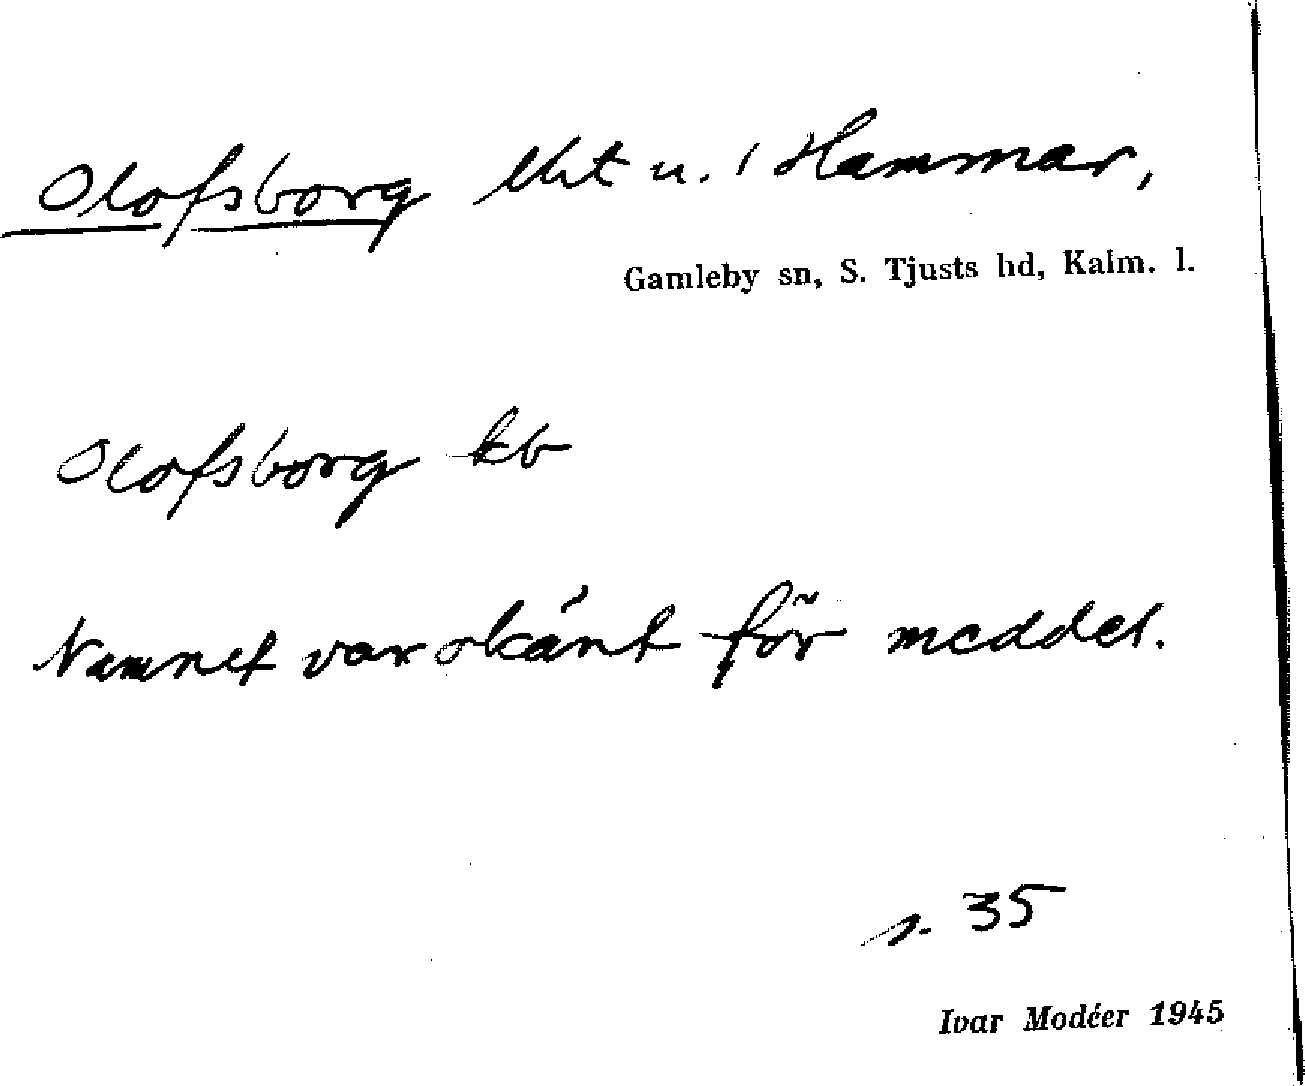 Olofsborg lht u. 1 Hammar,
Gamleby sn, S. Tjusts hd, Kalm. l.
Olofsborg kb
Namnet var okänt för meddel.
s. 35
Ivar Modéer 1945